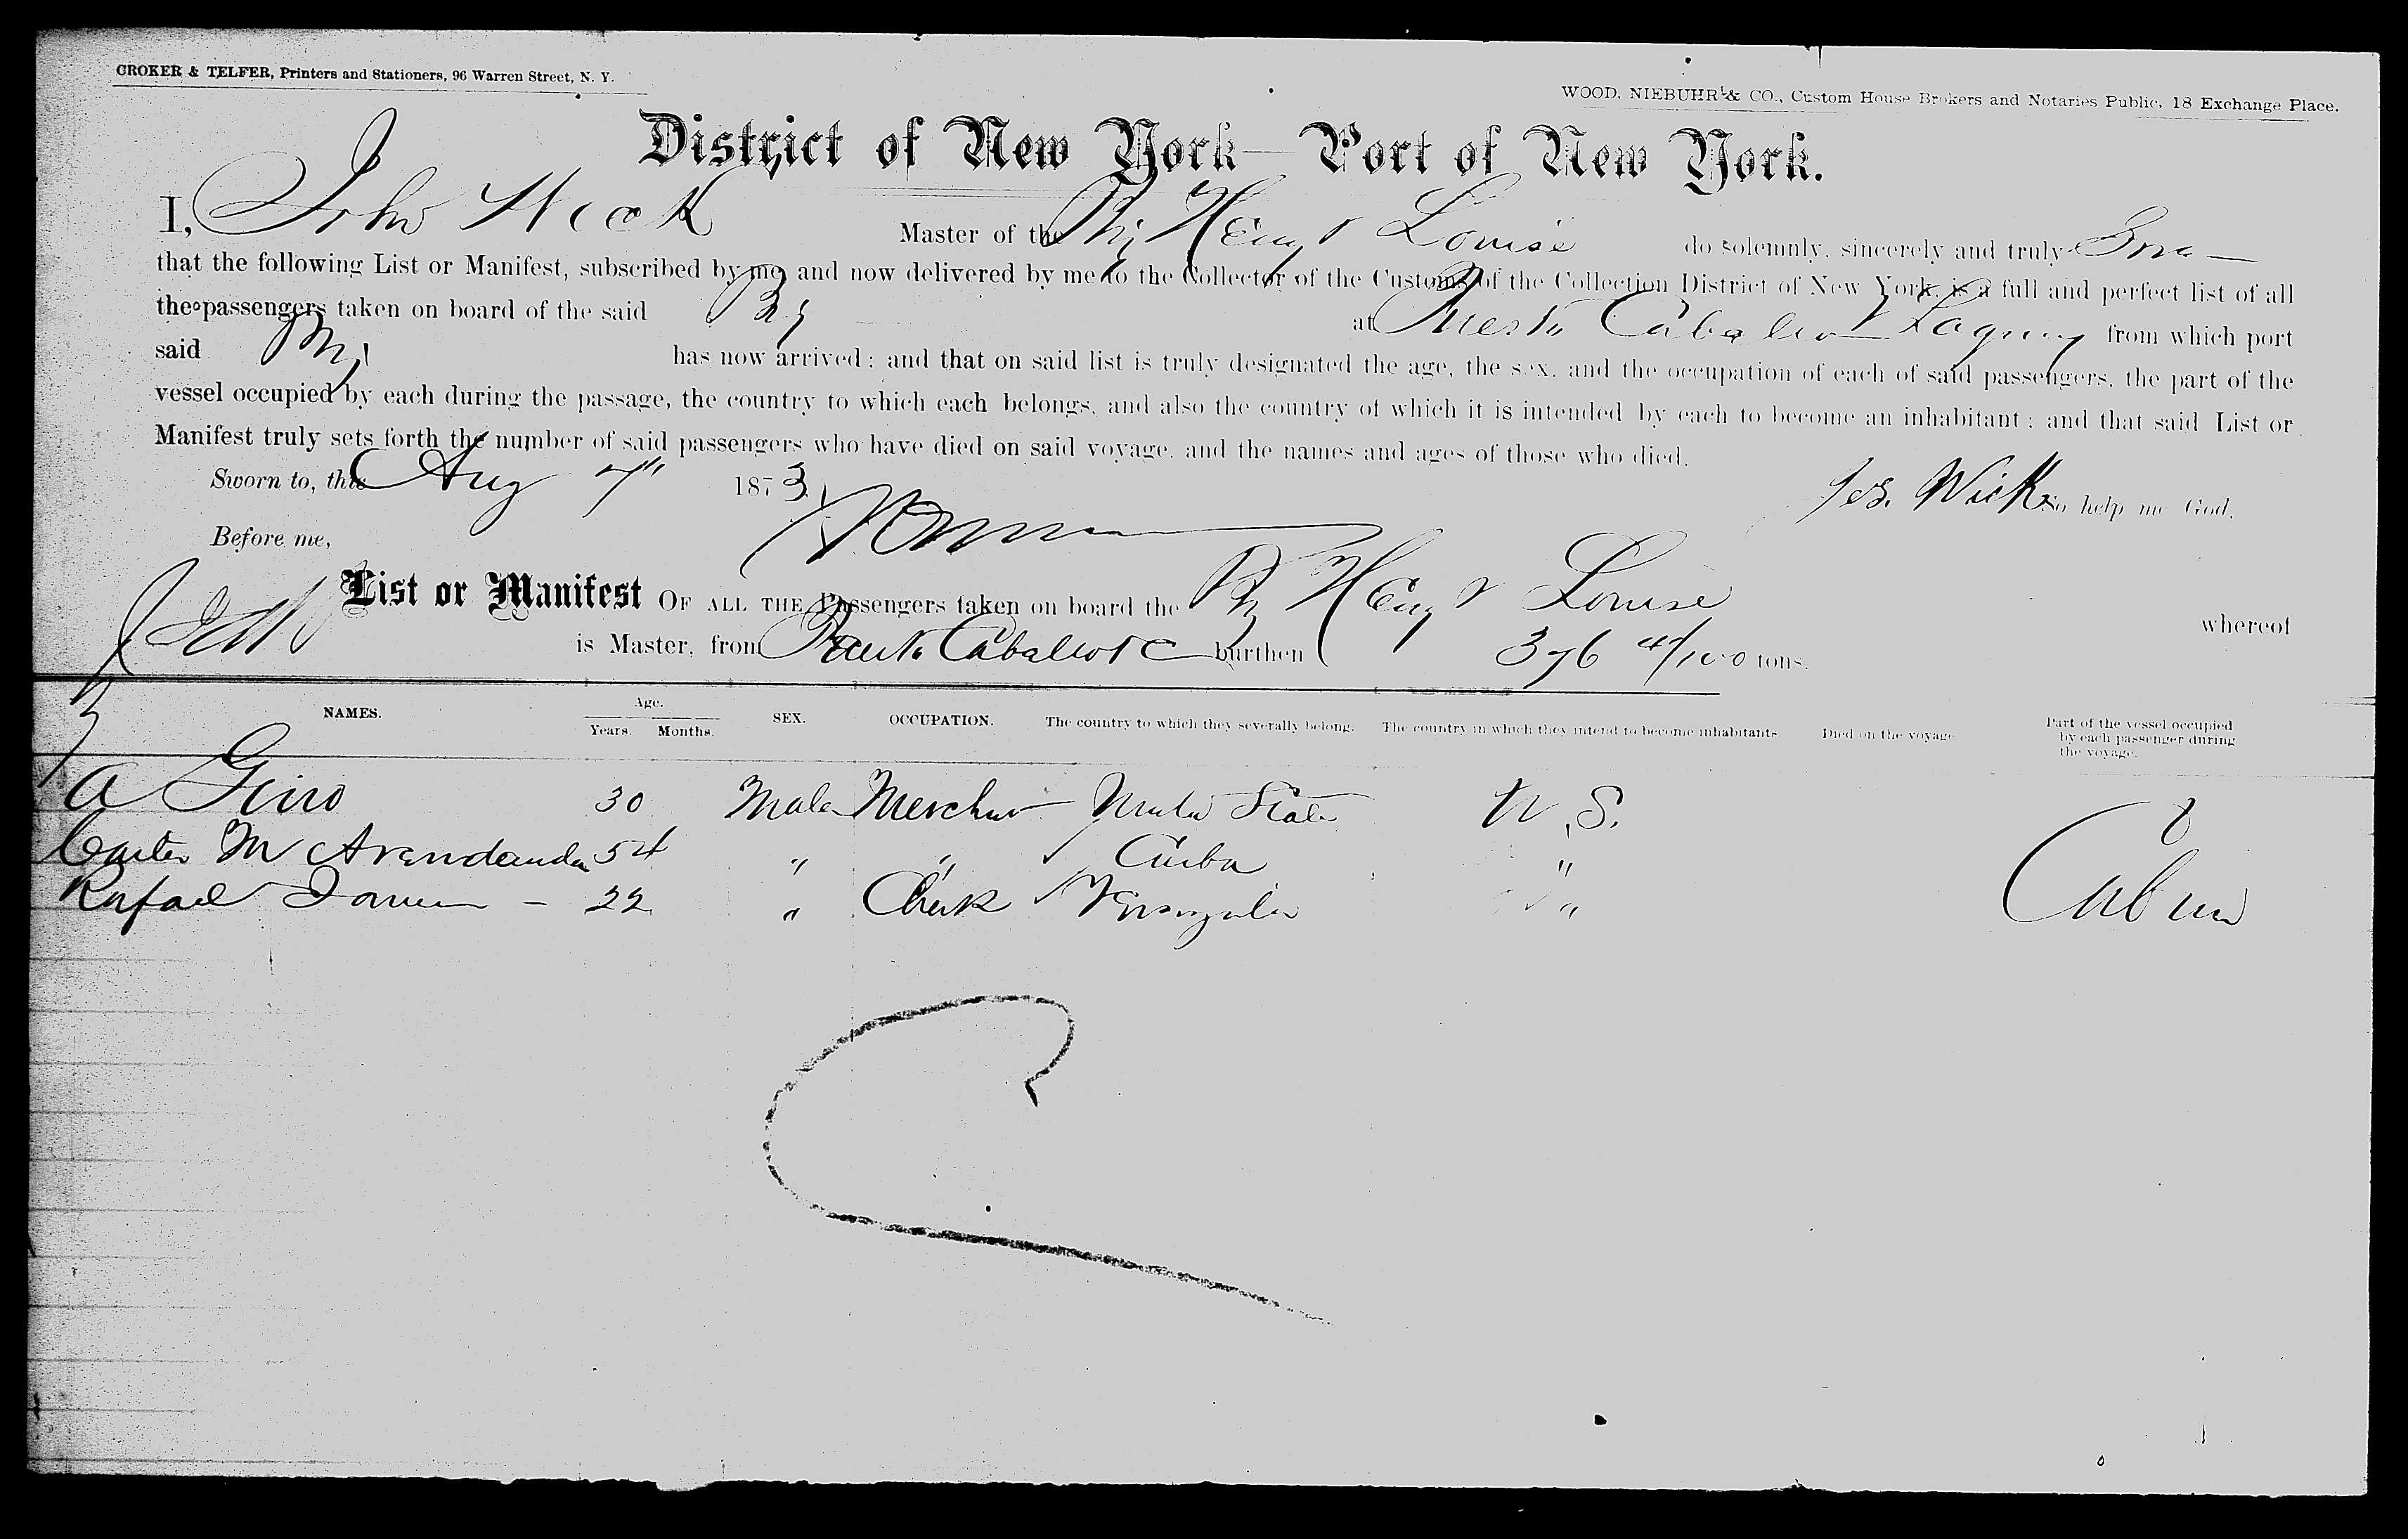 CROKER & TELFER, Printers and Stationers, 96 Warren Street, N. Y.
WOOD, NIEBUHR & CO., Custom House Brokers and Notaries Public, 18 Exchange Place.
District of New York—Port of New York.
I, John Master of the Henry & Louise do solemnly, sincerely and truly
that the following List or Manifest, subscribed by me, and now delivered by me to the Collector of the Customs of the Collection District of New York, is a full and perfect list of all
the passengers taken on board of the said Brig at Puerto Cabello & Laguayra from which port
said Brig has now arrived; and that on said list is truly designated the age, the sex, and the occupation of each of said passengers, the part of the
vessel occupied by each during the passage, the country to which each belongs, and also the country of which it is intended by each to become an inhabitant; and that said List or
Manifest truly sets forth the number of said passengers who have died on said voyage, and the names and ages of those who died.
Sworn to, this Aug 7th 1873 Wick So help me God.
Before me,
List or Manifest OF ALL THE Passengers taken on board the Henry & Louise whereof
is Master, from Puerto Cabello burthen 376 tons.
NAMES. Age. Years. Months. SEX. OCCUPATION. The country to which they severally belong. The country in which they intend to become inhabitants. Died on the voyage. Part of the vessel occupied by each passenger during the voyage.
A 30 Male Merchant United States U.S.
M 54 " " Cuba "
Rafael 22 " Clerk Venezuela "
Cabin